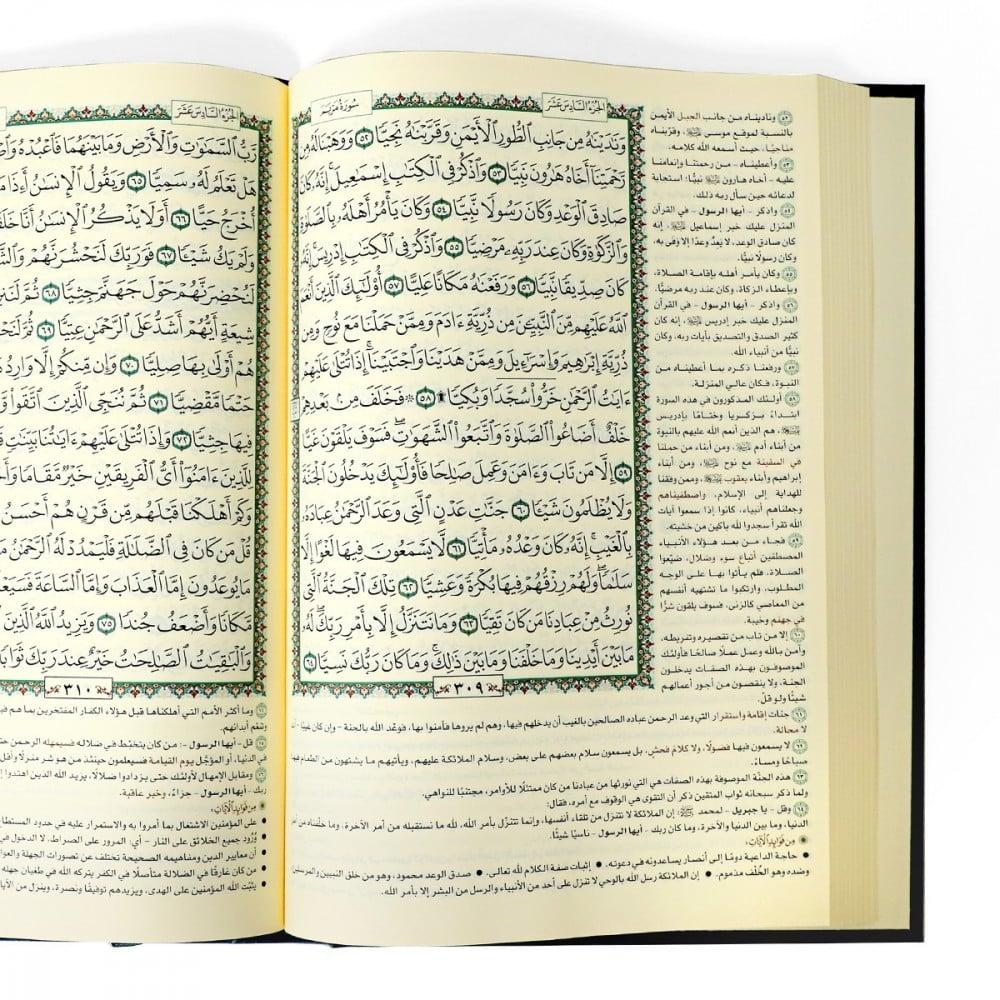 الجزء السادس عشر
سورة مريم
وَنَٰدَيۡنَٰهُ مِن جَانِبِ ٱلطُّورِ ٱلۡأَيۡمَنِ وَقَرَّبۡنَٰهُ نَجِيّٗا ٥٢ وَوَهَبۡنَا لَهُۥ مِن
رَّحۡمَتِنَآ أَخَاهُ هَٰرُونَ نَبِيّٗا ٥٣ وَٱذۡكُرۡ فِي ٱلۡكِتَٰبِ إِسۡمَٰعِيلَۚ إِنَّهُۥ كَانَ
صَادِقَ ٱلۡوَعۡدِ وَكَانَ رَسُولٗا نَّبِيّٗا ٥٤ وَكَانَ يَأۡمُرُ أَهۡلَهُۥ بِٱلصَّلَوٰةِ
وَٱلزَّكَوٰةِ وَكَانَ عِندَ رَبِّهِۦ مَرۡضِيّٗا ٥٥ وَٱذۡكُرۡ فِي ٱلۡكِتَٰبِ إِدۡرِيسَۚ إِنَّهُۥ
كَانَ صِدِّيقٗا نَّبِيّٗا ٥٦ وَرَفَعۡنَٰهُ مَكَانًا عَلِيًّا ٥٧ أُوْلَٰٓئِكَ ٱلَّذِينَ أَنۡعَمَ
ٱللَّهُ عَلَيۡهِم مِّنَ ٱلنَّبِيِّـۧنَ مِن ذُرِّيَّةِ ءَادَمَ وَمِمَّنۡ حَمَلۡنَا مَعَ نُوحٖ وَمِن
ذُرِّيَّةِ إِبۡرَٰهِيمَ وَإِسۡرَٰٓءِيلَ وَمِمَّنۡ هَدَيۡنَا وَٱجۡتَبَيۡنَآۚ إِذَا تُتۡلَىٰ عَلَيۡهِمۡ
ءَايَٰتُ ٱلرَّحۡمَٰنِ خَرُّواْۤ سُجَّدٗاۤ وَبُكِيّٗا۩ ٥٨ ۞ فَخَلَفَ مِنۢ بَعۡدِهِمۡ
خَلۡفٌ أَضَاعُواْ ٱلصَّلَوٰةَ وَٱتَّبَعُواْ ٱلشَّهَوَٰتِۖ فَسَوۡفَ يَلۡقَوۡنَ غَيًّا
٥٩ إِلَّا مَن تَابَ وَءَامَنَ وَعَمِلَ صَٰلِحٗا فَأُوْلَٰٓئِكَ يَدۡخُلُونَ ٱلۡجَنَّةَ
وَلَا يُظۡلَمُونَ شَيۡـٔٗا ٦٠ جَنَّٰتِ عَدۡنٍ ٱلَّتِي وَعَدَ ٱلرَّحۡمَٰنُ عِبَادَهُۥ
بِٱلۡغَيۡبِۚ إِنَّهُۥ كَانَ وَعۡدُهُۥ مَأۡتِيّٗا ٦١ لَّا يَسۡمَعُونَ فِيهَا لَغۡوًا إِلَّا
سَلَٰمٗاۖ وَلَهُمۡ رِزۡقُهُمۡ فِيهَا بُكۡرَةٗ وَعَشِيّٗا ٦٢ تِلۡكَ ٱلۡجَنَّةُ ٱلَّتِي
نُورِثُ مِنۡ عِبَادِنَا مَن كَانَ تَقِيّٗا ٦٣ وَمَا نَتَنَزَّلُ إِلَّا بِأَمۡرِ رَبِّكَۖ لَهُۥ
مَا بَيۡنَ أَيۡدِينَا وَمَا خَلۡفَنَا وَمَا بَيۡنَ ذَٰلِكَۚ وَمَا كَانَ رَبُّكَ نَسِيّٗا ٦٤
٣٠٩
٥٢ وناديناه من جانب الجبل الأيمن
بالنسبة لموقع موسى ﷺ، وقرّبناه
مناجيًا، حيث أسمعه الله كلامه.
٥٣ وأعطيناه - من رحمتنا وإنعامنا
عليه - أخاه هارون ﷺ نبيًّا؛ استجابة
لدعائه حين سأل ربه ذلك.
٥٤ واذكر - أيها الرسول - في القرآن
المنزل عليك خبر إسماعيل ﷺ، إنه
كان صادق الوعد، لا يعدُ وعدًا إلا وَفى به،
وكان رسولًا نبيًّا.
٥٥ وكان يأمر أهله بإقامة الصلاة،
وبإعطاء الزكاة، وكان عند ربه مرضيًّا.
٥٦ واذكر - أيها الرسول - في القرآن
المنزل عليك خبر إدريس ﷺ، إنه كان
كثير الصدق والتصديق بآيات ربه، وكان
نبيًّا من أنبياء الله.
٥٧ ورفعنا ذكره بما أعطيناه من
النبوة، فكان عالي المنزلة.
٥٨ أولئك المذكورون في هذه السورة
ابتداءً بزكريا وختامًا بإدريس
ﷺ، هم الذين أنعم الله عليهم بالنبوة
من أبناء آدم ﷺ، ومن أبناء من حملنا
في السفينة مع نوح ﷺ، ومن أبناء
إبراهيم وأبناء يعقوب ﷺ، وممن وفقنا
للهداية إلى الإسلام، واصطفيناهم
وجعلناهم أنبياء، كانوا إذا سمعوا آيات
الله تقرأ سجدوا لله باكين من خشيته.
٥٩ فجاء من بعد هؤلاء الأنبياء
المصطفين أتباع سوء وضلال، ضيّعوا
الصلاة، فلم يأتوا بها على الوجه
المطلوب، وارتكبوا ما تشتهيه أنفسهم
من المعاصي كالزنى، فسوف يلقون شرًّا
في جهنم وخيبة.
٦٠ إلا من تاب من تقصيره وتفريطه،
وآمن بالله وعمل عملًا صالحًا فأولئك
الموصوفون بهذه الصفات يدخلون
الجنة، ولا ينقصون من أجور أعمالهم
شيئًا ولو قلّ.
٦١ جنات إقامة واستقرار التي وعد الرحمن عباده الصالحين بالغيب أن يدخلهم فيها، وهم لم يروها فآمنوا بها، فوعْد الله بالجنة - وإن كان غيبًا - آتٍ
لا محالة.
٦٢ لا يسمعون فيها فضولًا، ولا كلام فحش، بل يسمعون سلام بعضهم على بعض، وسلام الملائكة عليهم، ويأتيهم ما يشتهون من الطعام فيها
صباحًا ومساءً.
٦٣ هذه الجنّة الموصوفة بهذه الصفات هي التي نورثها من عبادنا من كان ممتثلًا للأوامر، مجتنبًا للنواهي.
ولما ذكر سبحانه ثواب المتقين ذكر أن التقوى هي الوقوف مع أمره، فقال:
٦٤ وقل - يا جبريل - لمحمد ﷺ: إن الملائكة لا تتنزل من تلقاء أنفسها، وإنما تتنزّل بأمر الله، لله ما نستقبله من أمر الآخرة، وما خلّفناه من أمر
الدنيا، وما بين الدنيا والآخرة، وما كان ربك - أيها الرسول - ناسيًا شيئًا.
من فوائد الآيات:
• حاجة الداعية دومًا إلى أنصار يساعدونه في دعوته. • إثبات صفة الكلام لله تعالى. • صدق الوعد محمود، وهو من خلق النبيين والمرسلين
وضده وهو الخُلْف مذموم. • إن الملائكة رسل الله بالوحي لا تنزل على أحد من الأنبياء والرسل من البشر إلا بأمر الله.
الجزء السادس عشر
رَّبُّ ٱلسَّمَٰوَٰتِ وَٱلۡأَرۡضِ وَمَا بَيۡنَهُمَا فَٱعۡبُدۡهُ
هَلۡ تَعۡلَمُ لَهُۥ سَمِيّٗا ٦٥ وَيَقُولُ ٱلۡإِنسَٰنُ أَءِذَا مَا
أُخۡرَجُ حَيًّا ٦٦ أَوَلَا يَذۡكُرُ ٱلۡإِنسَٰنُ أَنَّا
وَلَمۡ يَكُ شَيۡـٔٗا ٦٧ فَوَرَبِّكَ لَنَحۡشُرَنَّهُمۡ
لَنُحۡضِرَنَّهُمۡ حَوۡلَ جَهَنَّمَ جِثِيّٗا ٦٨ ثُمَّ
شِيعَةٍ أَيُّهُمۡ أَشَدُّ عَلَى ٱلرَّحۡمَٰنِ عِتِيّٗا ٦٩ ثُمَّ
هُمۡ أَوۡلَىٰ بِهَا صِلِيّٗا ٧٠ وَإِن مِّنكُمۡ إِلَّا
حَتۡمٗا مَّقۡضِيّٗا ٧١ ثُمَّ نُنَجِّي ٱلَّذِينَ ٱتَّقَواْ
فِيهَا جِثِيّٗا ٧٢ وَإِذَا تُتۡلَىٰ عَلَيۡهِمۡ ءَايَٰتُنَا بَيِّنَٰتٖ
لِلَّذِينَ ءَامَنُوٓاْ أَيُّ ٱلۡفَرِيقَيۡنِ خَيۡرٞ مَّقَامٗا
وَكَمۡ أَهۡلَكۡنَا قَبۡلَهُم مِّن قَرۡنٍ هُمۡ أَحۡسَنُ
قُلۡ مَن كَانَ فِي ٱلضَّلَٰلَةِ فَلۡيَمۡدُدۡ لَهُ ٱلرَّحۡمَٰنُ
مَا يُوعَدُونَ إِمَّا ٱلۡعَذَابَ وَإِمَّا ٱلسَّاعَةَ
مَّكَانٗا وَأَضۡعَفُ جُندٗا ٧٥ وَيَزِيدُ ٱللَّهُ ٱلَّذِينَ
وَٱلۡبَٰقِيَٰتُ ٱلصَّٰلِحَٰتُ خَيۡرٌ عِندَ رَبِّكَ ثَوَابٗا
٣١٠
وما أكثر الأمم التي أهلكناها قبل هؤلاء الكفار المفتخرين بما هم
وتنعم أبدانهم.
قل - أيها الرسول -: من كان يتخبّط في ضلاله فسيمهله الرحمن
في الدنيا، أو المؤجَّل يوم القيامة فسيعلمون حينئذ من هو شر منزلًا
ومقابل الإمهال لأولئك حتى يزدادوا ضلالًا، يزيد الله الذين اهتدوا
ربك - أيها الرسول - جزاءً، وخير عاقبة.
من فوائد الآيات:
• على المؤمنين الاشتغال بما أمروا به والاستمرار عليه في حدود
• وُرُود جميع الخلائق على النار - أي: المرور على الصراط، لا الدخول
• أن معايير الدين ومفاهيمه الصحيحة تختلف عن تصورات الجهلة
• من كان غارقًا في الضلالة متأصلًا في الكفر يتركه الله في طغيان جهله
• يثبّت الله المؤمنين على الهدى، ويزيدهم توفيقًا ونصرة، وينزل من